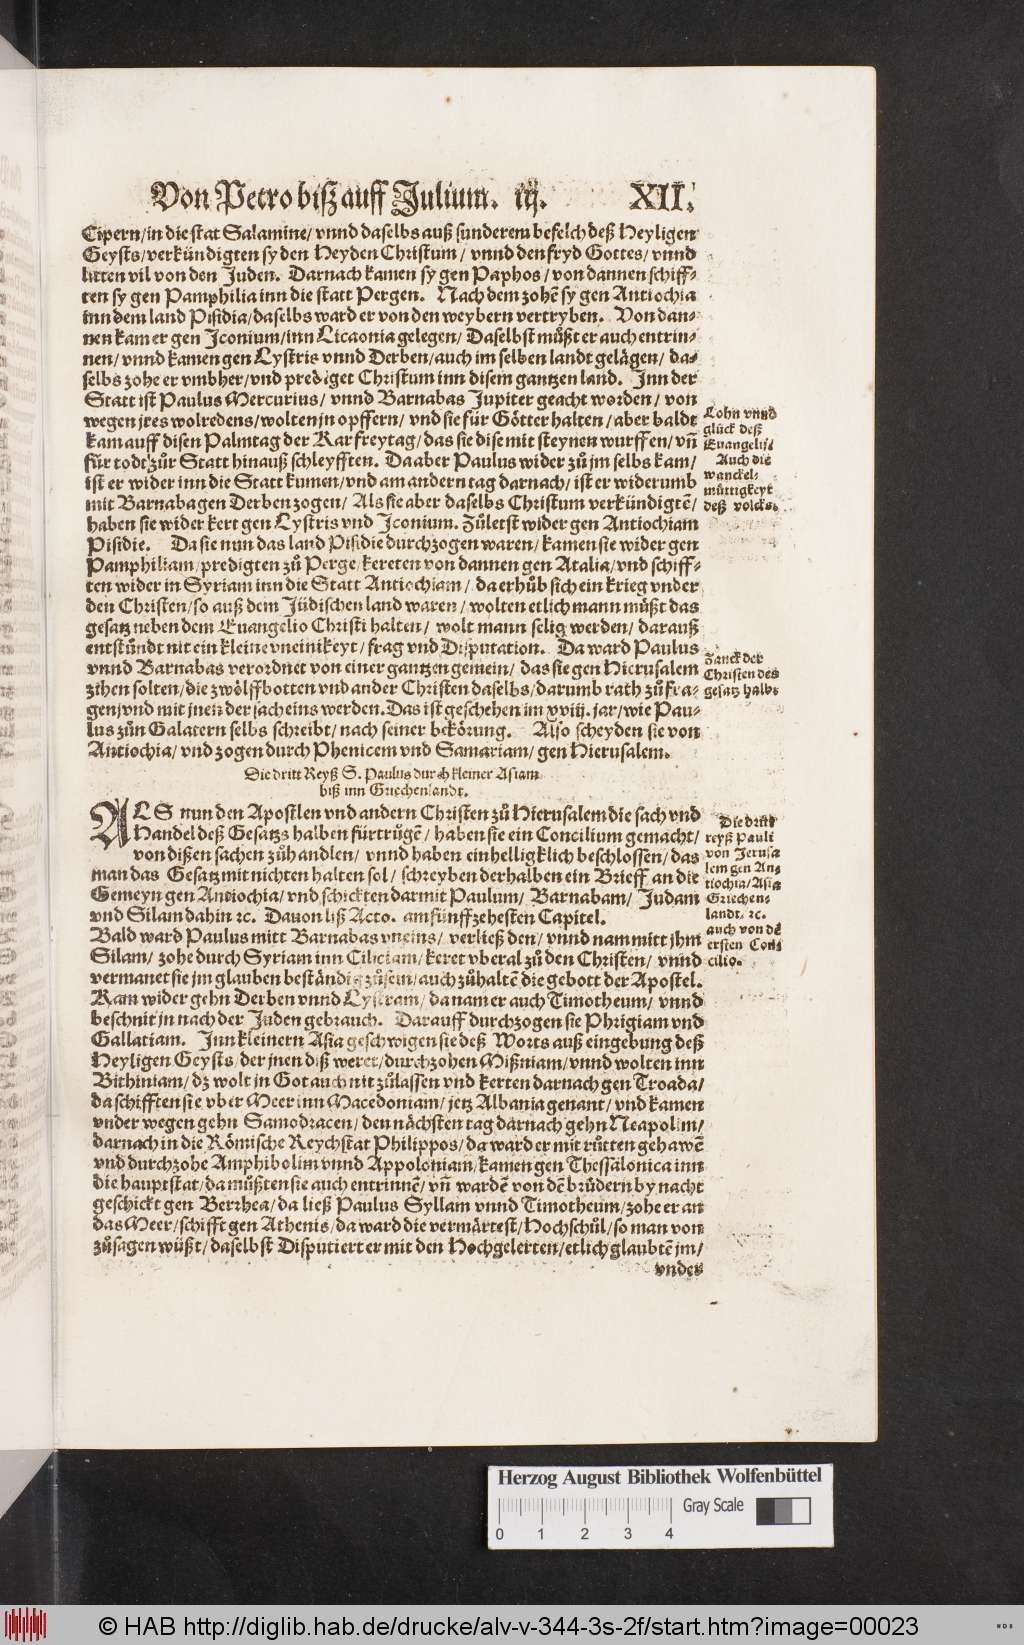 Von Petro biß auff Julium. iij. XII.
Cipern/in die stat Salamine/vnnd daselbs auß sunderem befelch deß Heyligen
Geysts/verkündigten sy den Heyden Christum/ vnnd den fryd Gottes/vnnd
litten vil von den Juden. Darnach kamen sy gen Paphos/von dannen schiff-
ten sy gen Pamphilia inn die statt Pergen. Nach dem zohē sy gen Antiochia
inn dem land Pisidia/daselbs ward er von den weybern vertryben. Von dan-
nen kam er gen Iconium/inn Licaonia gelegen/Daselbst můßt er auch entrin-
nen/vnnd kamen gen Lystris vnnd Derben/auch im selben landt gelägen/da-
selbs zohe er vmbher/vnd prediget Christum inn disem gantzen land. Inn der
Statt ist Paulus Mercurius/ vnnd Barnabas Jupiter geacht worden/ von
wegen jres wolredens/wolten jn opffern/ vnd sie für Götter halten/aber baldt
kam auff disen Palmtag der Karfreytag/das sie dise mit steynen wurffen/vñ
für todt zůr Statt hinauß schleyfften. Da aber Paulus wider zů jm selbs kam/
ist er wider inn die Statt kumen/vnd am andern tag darnach/ist er widerumb
mit Barnaba gen Derben zogen/ Als sie aber daselbs Christum verkündigtē/
haben sie wider kert gen Lystris vnd Iconium. Zůletst wider gen Antiochiam
Pisidie. Da sie nun das land Pisidie durchzogen waren/kamen sie wider gen
Pamphiliam/predigten zů Perge/kereten von dannen gen Atalia/vnd schiff-
ten wider in Syriam inn die Statt Antiochiam/da erhůb sich ein krieg vnder
den Christen/so auß dem Jüdischen land waren/wolten etlich mann můßt das
gesatz neben dem Euangelio Christi halten/ wolt mann selig werden/ darauß
entstůndt nit ein kleine vneinikeyt/frag vnd Disputation. Da ward Paulus
vnnd Barnabas verordnet von einer gantzen gemein/das sie gen Hierusalem
ziehen solten/die zwölffbotten vnd ander Christen daselbs/darumb rath zů fra-
gen/vnd mit jnen der sach eins werden. Das ist geschehen im xviij. jar/wie Pau-
lus zůn Galatern selbs schreibt/nach seiner bekörung. Also scheyden sie von
Antiochia/vnd zogen durch Phenicem vnd Samariam/gen Hierusalem.
Lohn vnnd
glück deß
Euangelij.
Auch die
wanckel-
můttigkeyt
deß volcks.
Zanck der
Christen des
gesatz halb.
Die dritt Reyß S. Paulus durch kleiner Asiam
biß inn Griechenlandt.
ALS nun den Apostlen vnd andern Christen zů Hierusalem die sach vnd
Handel deß Gesatzs halben fürtrůgē/haben sie ein Concilium gemacht/
von dißen sachen zů handlen/ vnnd haben einhelligklich beschlossen/das
man das Gesatz mit nichten halten sol/ schreyben derhalben ein Brieff an die
Gemeyn gen Antiochia/vnd schickten darmit Paulum/ Barnabam/ Judam
vnd Silam dahin ꝛc. Dauon liß Acto. am fünffzehesten Capitel.
Bald ward Paulus mitt Barnabas vneins/ verließ den/vnnd nam mitt jhm
Silam/zohe durch Syriam inn Ciliciam/keret vberal zů den Christen/ vnnd
vermanet sie im glauben beständig zůsein/auch zůhaltē die gebott der Apostel.
Kam wider gehn Derben vnnd Lystram/da nam er auch Timotheum/vnnd
beschnit jn nach der Juden gebrauch. Darauff durchzogen sie Phrigiam vnd
Gallatiam. Inn kleinern Asia geschwigen sie deß Worts auß eingebung deß
Heyligen Geysts/der jnen diß weret/durchzohen Mißniam/vnnd wolten inn
Bithiniam/dz wolt jn Got auch nit zůlassen vnd kerten darnach gen Troada/
da schifften sie vber Meer inn Macedoniam/jetz Albania genant/vnd kamen
vnder wegen gehn Samodracen/den nächsten tag darnach gehn Neapolim/
darnach in die Römische Reychstat Philippos/da ward er mit růtten gehawē
vnd durchzohe Amphibolim vnnd Appoloniam/kamen gen Thessalonica inn
die hauptstat/da můßten sie auch entrinnē/vñ wardē von dē brůdern by nacht
geschickt gen Berrhea/da ließ Paulus Syllam vnnd Timotheum/zohe er an
das Meer/schifft gen Athenis/da ward die vermärtest/Hochschůl/so man von
zůsagen wüßt/daselbst Disputiert er mit den Hochgelerten/etlich glaubtē jm/
vnder
Die dritt
reyß Pauli
von Jerusa
lem gen An-
tiochia/Asia
Griechen-
landt. ꝛc.
auch von dē
ersten Con-
cilio.
Herzog August Bibliothek Wolfenbüttel
Gray Scale
0 1 2 3 4
© HAB http://diglib.hab.de/drucke/alv-v-344-3s-2f/start.htm?image=00023